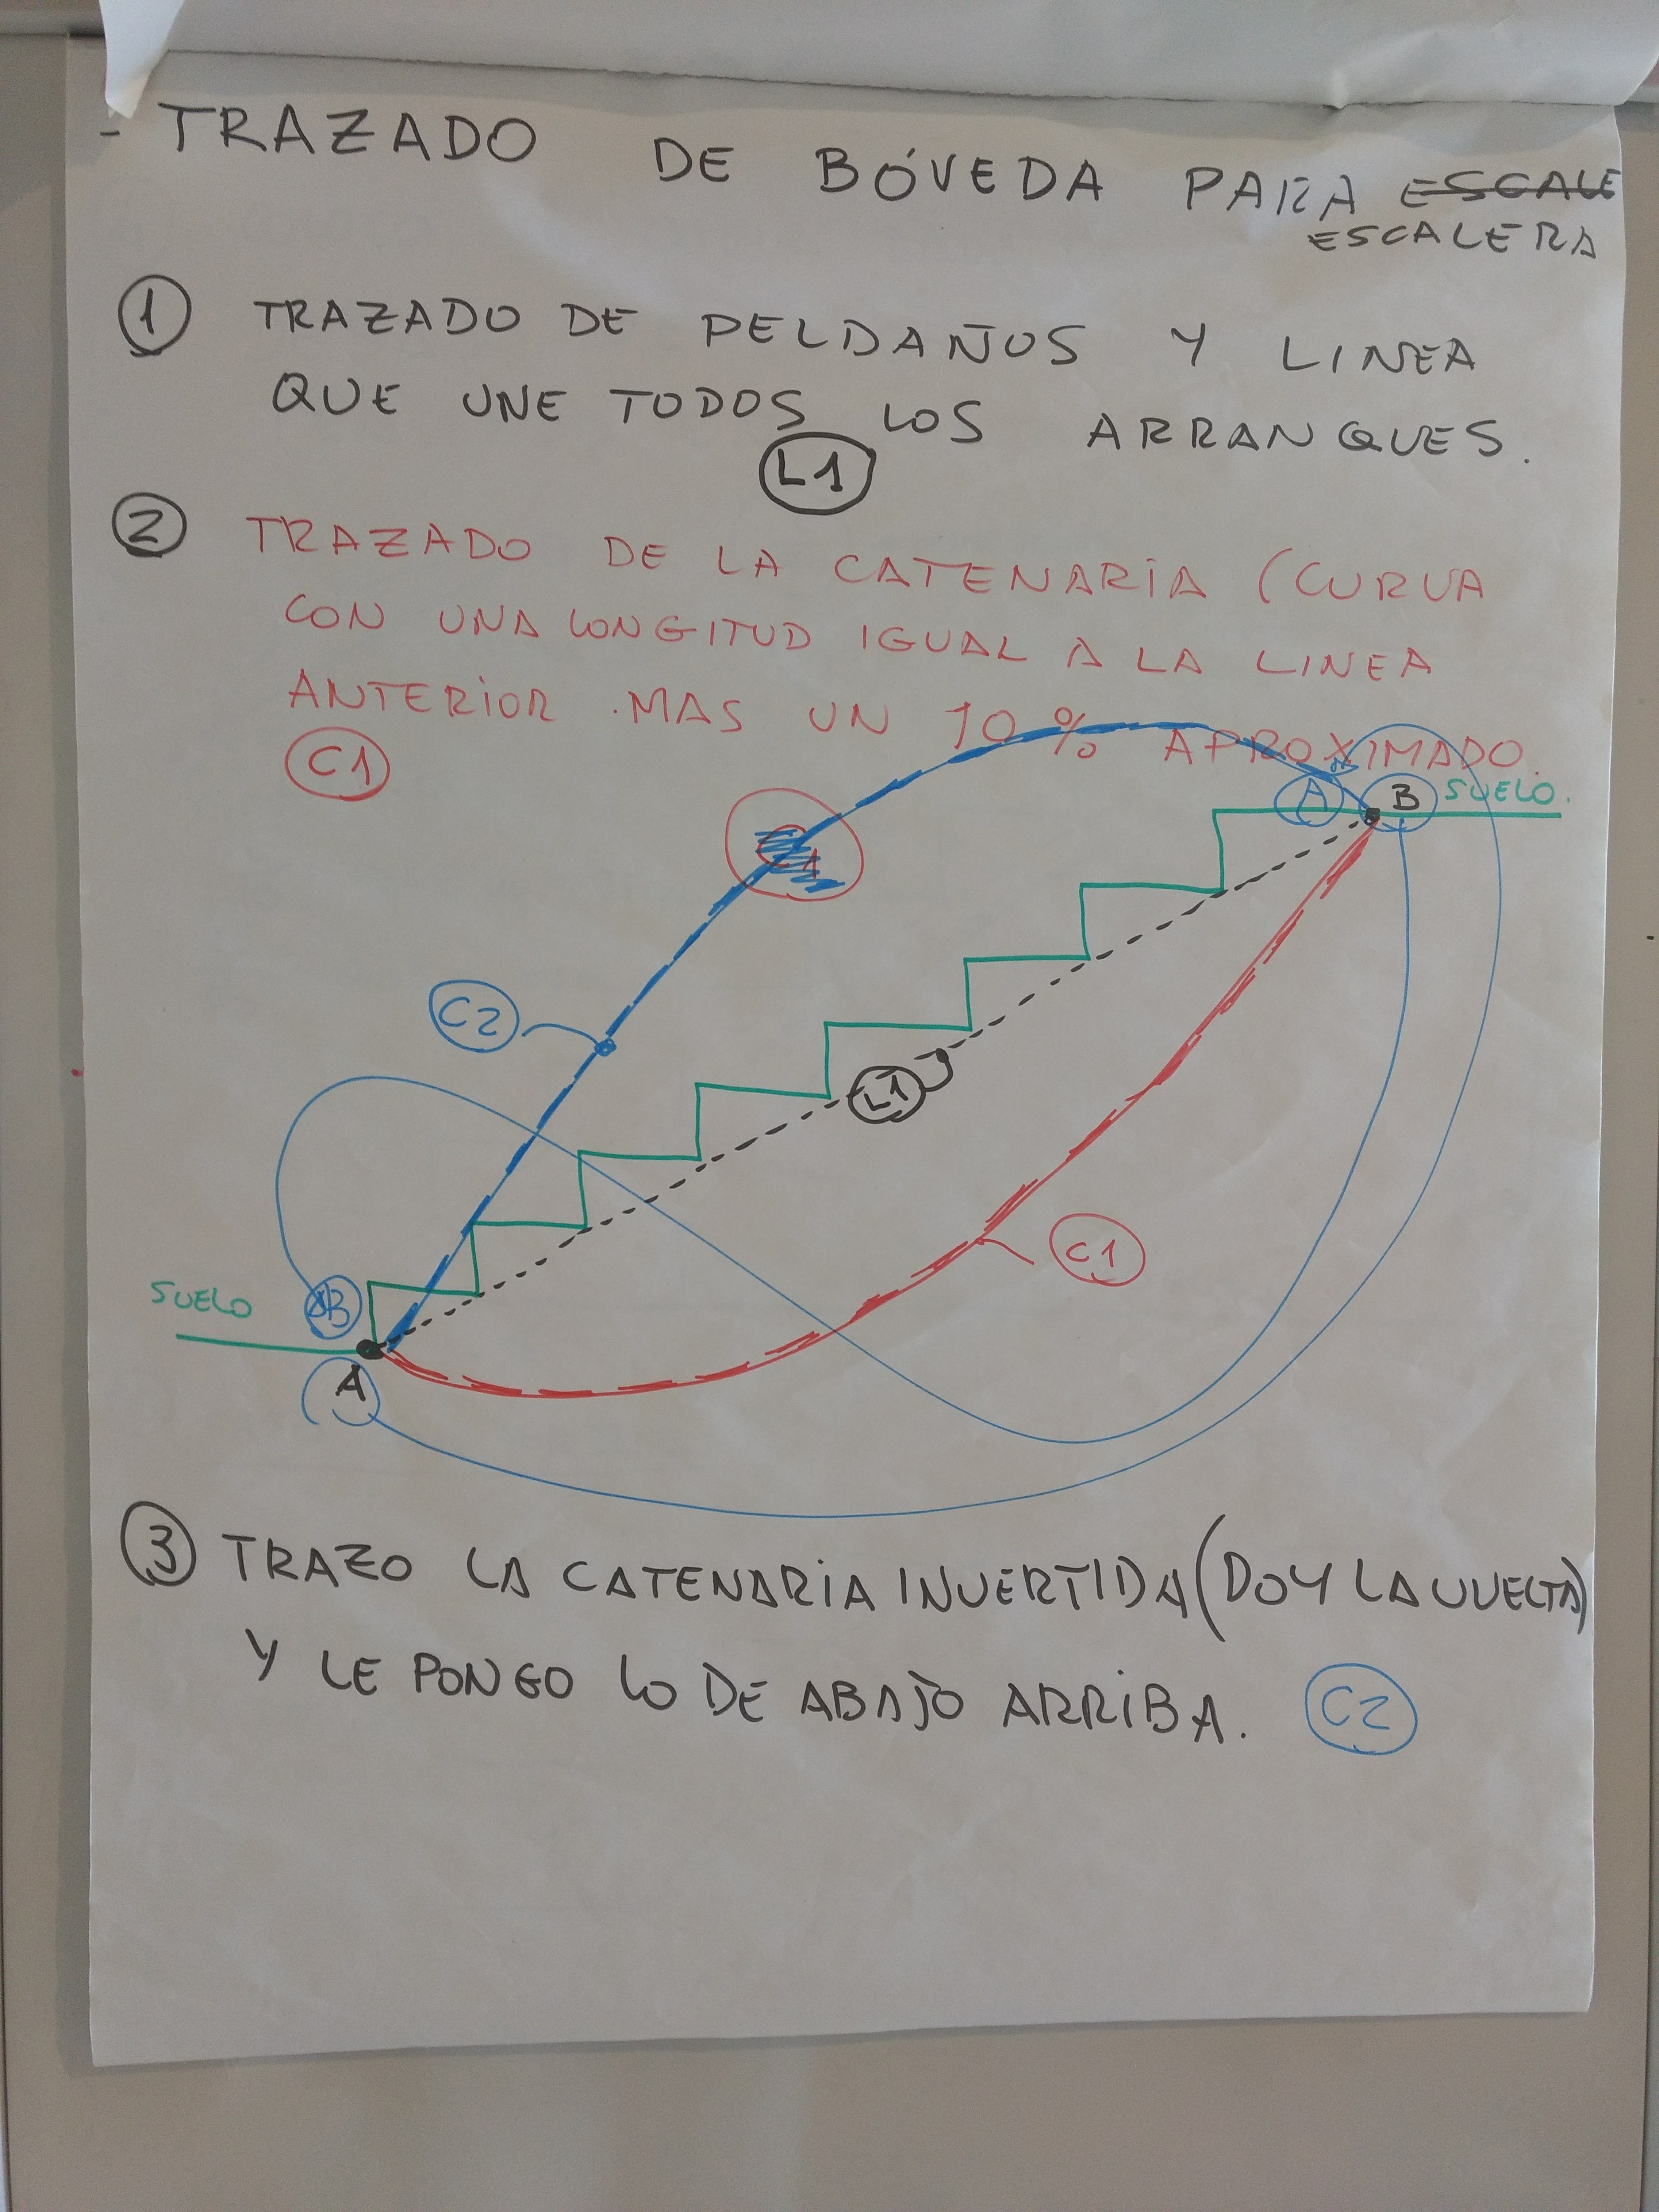 - TRAZADO DE BÓVEDA PARA ESCALE
ESCALERA
1 TRAZADO DE PELDAÑOS Y LINEA
QUE UNE TODOS LOS ARRANQUES.
L1
2 TRAZADO DE LA CATENARIA (CURVA
CON UNA LONGITUD IGUAL A LA LINEA
ANTERIOR MAS UN 10% APROXIMADO.
C1
A B SUELO.
C1
C2
L1
C1
SUELO B
A
3 TRAZO LA CATENARIA INVERTIDA (DOY LA VUELTA)
Y LE PONGO LO DE ABAJO ARRIBA. C2